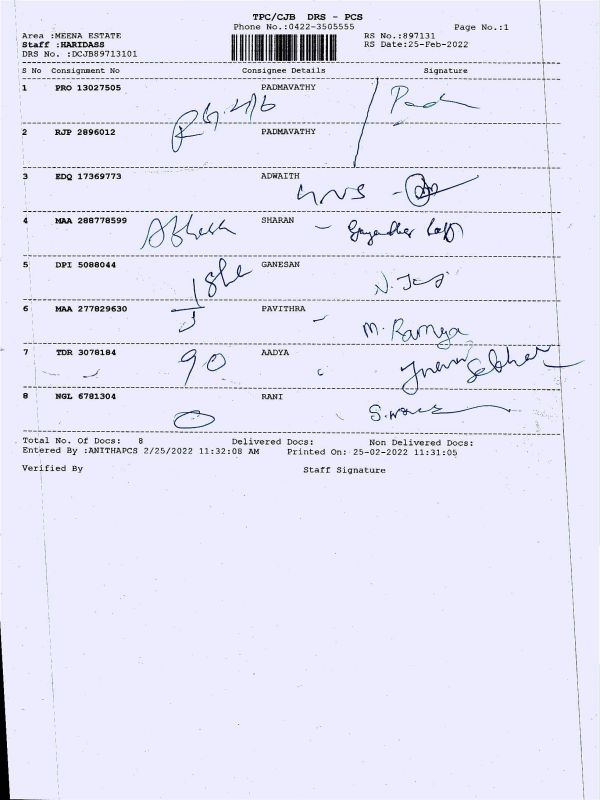 TPC/CJB DRS - PCS
Phone No.:0422-3505555 Page No.:1
Area :MEENA ESTATE RS No.:897131
Staff :HARIDASS RS Date:25-Feb-2022
DRS No. :DCJB89713101
S No Consignment No Consignee Details Signature
1 PRO 13027505 PADMAVATHY
2 RJP 2896012 PADMAVATHY
3 EDQ 17369773 ADWAITH
4 MAA 288778599 SHARAN
5 DPI 5088044 GANESAN
6 MAA 277829630 PAVITHRA
M. Ramya
7 TDR 3078184 90 AADYA
8 NGL 6781304 RANI
Total No. Of Docs: 8 Delivered Docs: Non Delivered Docs:
Entered By :ANITHAPCS 2/25/2022 11:32:08 AM Printed On: 25-02-2022 11:31:05
Verified By Staff Signature